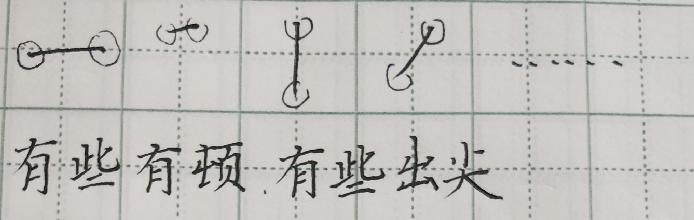 有些有顿.有些出尖